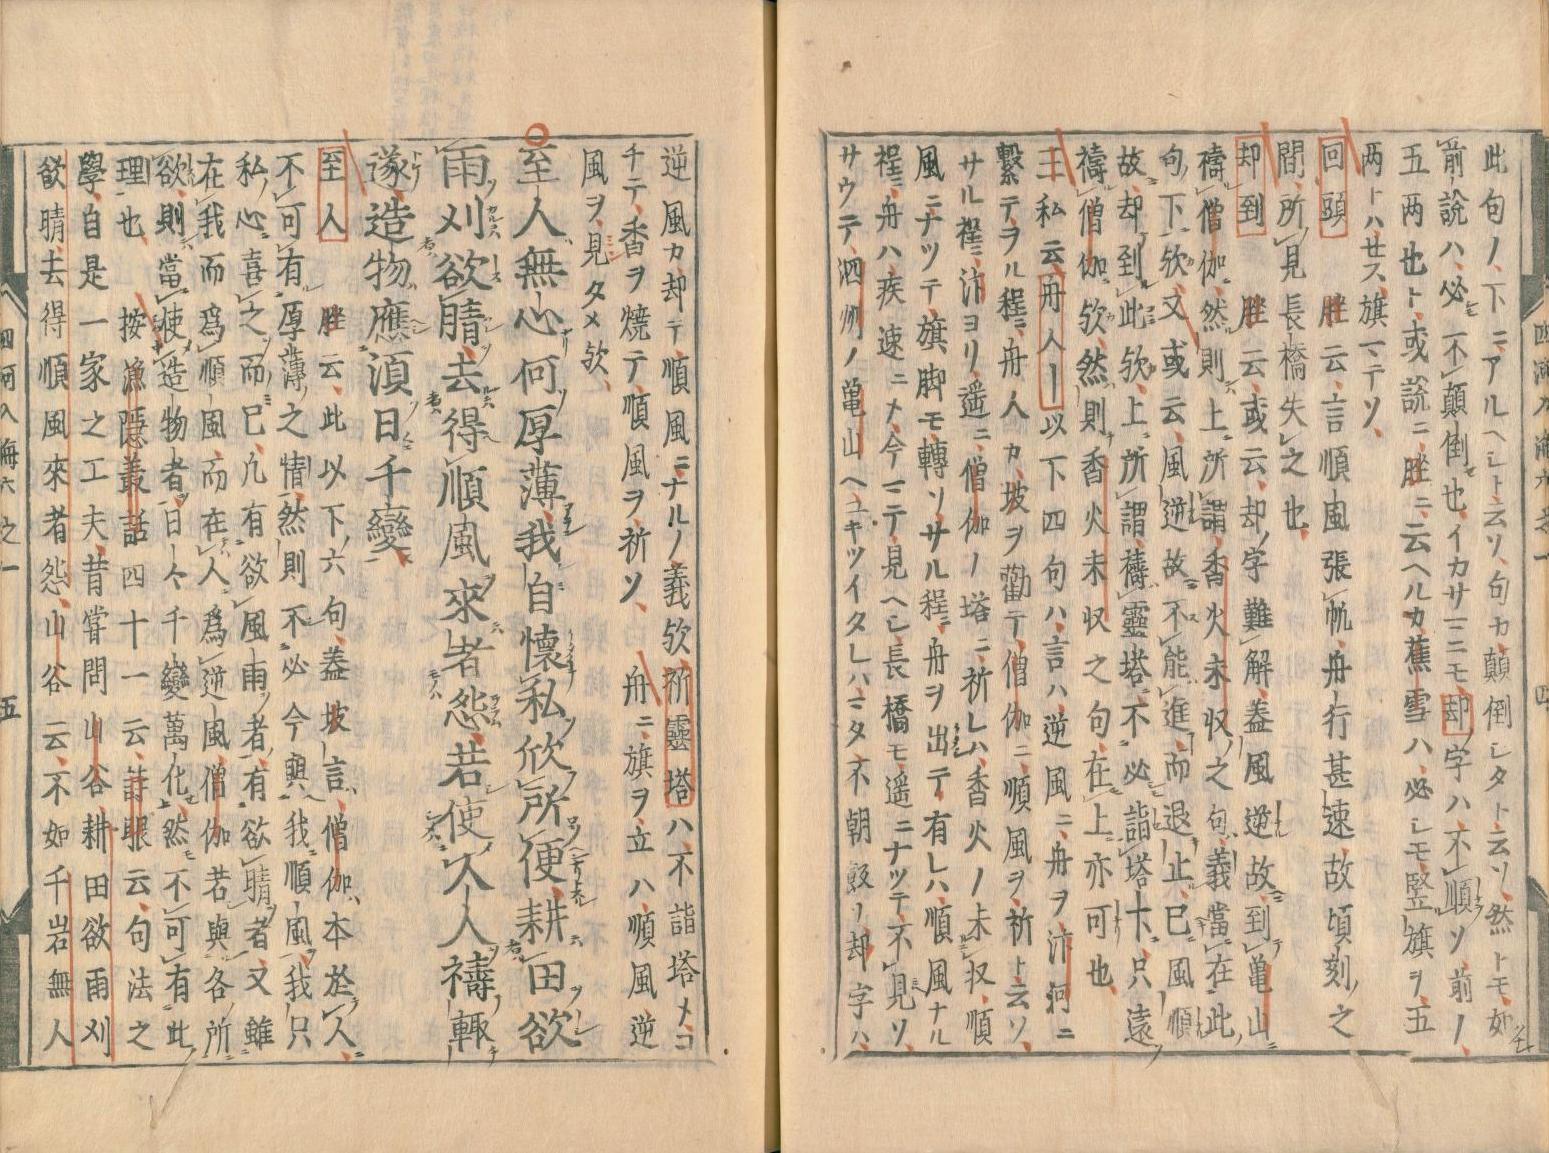 此句ノ下ニアルヘシト云ソ句カ顛倒レタト云ソ然トモ如
前説ハ必不顛倒也イカサニニモ却字ハ不順ソ前ノ
五两也ト或説ニ胜ニ云ヘルカ蕉雪ハ必シモ竪旗ヲ五
两トハせス旗ニテソ
回頭　胜云言順風張帆舟行甚速故頃刻之
間所見長橋失之也
却到　胜云或云却字難解蓋風逆故到亀山
禱僧伽然則上所謂香火未収之句義當在此
句下欤又或云風逆故不能進而退止已風順
故却到此欤上所謂禱霊塔不必詣塔下只遠
禱僧伽欤然則香火未収之句在上亦可也
王私云舟人｜以下四句ハ言ハ逆風ニ舟ヲ汴河ニ
繋テヲル程ニ舟人カ坡ヲ勸テ僧伽ニ順風ヲ祈ト云ソ
サル程ニ汴ヨリ遥ニ僧伽ノ塔ニ祈レハ香火ノ未収順
風ニナツテ旗脚モ轉ソサル程ニ舟ヲ出テ有レハ順風ナル
程ニ舟ハ疾速ニメ今ニテ見ヘシ長橋モ遥ニナツテ不見ソ
サウテ泗州ノ亀山ヘユキツイタレハニタ不朝殽ノ却字ハ
逆風カ却テ順風ニナルノ義欤祈靈塔ハ不詣塔メコ
チテ香ヲ焼テ順風ヲ祈ソ　舟ニ旗ヲ立ハ順風逆
風ヲ見タメ欤
至人無心何厚薄我自懐私欣所便耕田欲
雨刈欲晴去得順風來者怨若使人人禱輙
遂造物應湏日千變
至人　胜云此以下六句蓋坡言僧伽本於人
不可有厚薄之情然則不必今與我順風我只
私心喜之而已凢有欲風雨者有欲晴者又雖
在我而爲順風而在人爲逆風僧伽若與各所
欲則當使造物者日々千變萬化然不可有此
理也　按漁隠叢話四十一云詩眼云句法之
學自是一家之工夫昔甞問山谷耕田欲雨刈
欲晴去得順風來者怨山谷云不如千岩無人
四河入海六之一　五